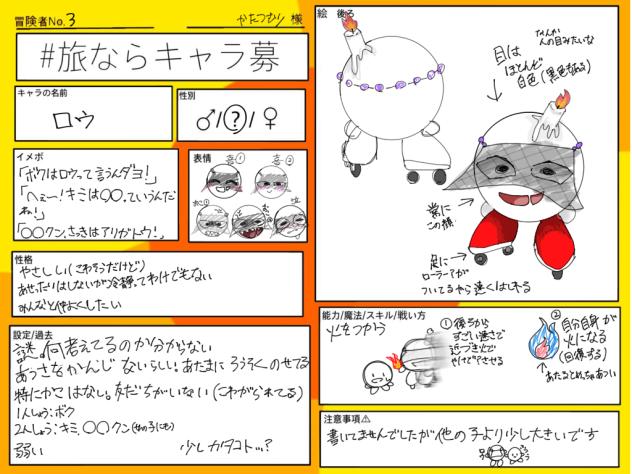 冒険者No.3
かたつむり 様
#旅ならキャラ募
キャラの名前
ロウ
性別
♂/?/♀
イメボ
「ボクはロウって言うんダヨ!」
「へぇ〜!キミは〇〇っていうんだね!」
「〇〇クン、さっきはアリガトウ!」
表情
喜①
喜②
おこ①
泣
性格
やさしい(こわそうだけど)
あせったりはしないが冷静ってわけでもない
みんなと仲よくしたい
設定/過去
謎。何考えてるのか分からない
あつさをかんじないらしい。あたまにろうそくのせてる
特にかこはなし。友だちがいない(こわがられてる)
1人しょう:ボク
2人しょう:キミ、〇〇クン(女の子にも)
弱い
少しカタコト…?
絵
後ろ
なんか
人の目みたいな
目は
ほとんど
白色(黒色もある)
常に
この顔
足に
ローラー?が
ついてるから速くはしれる
能力/魔法/スキル/戦い方
火をつかう
①後ろから
すごい速さで
近づき火で
やけど?させる
②自分自身が
火になる
(回復する)
あたるとめっちゃあつい
注意事項⚠
書いてませんでしたが他の子より少し大きいです